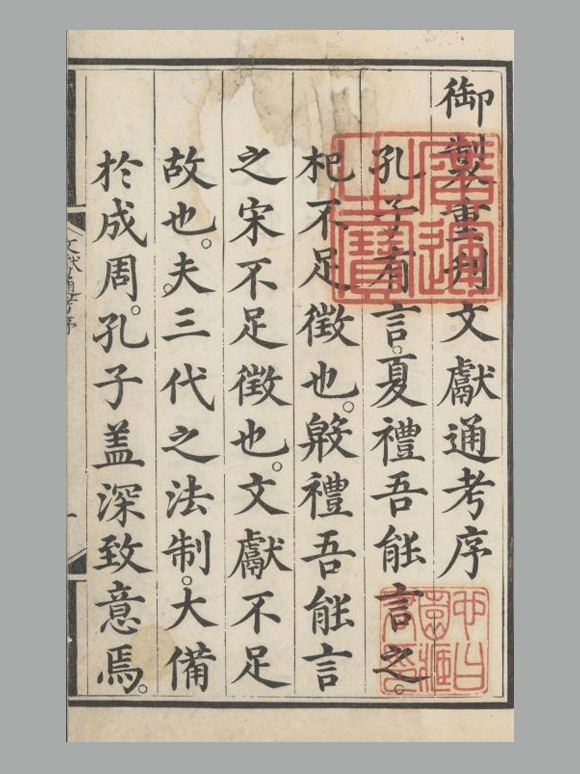 御製重刋文獻通考序
孔子有言。夏禮吾能言之。
杞不足徵也。殷禮吾能言
之宋不足徵也。文獻不足
故也。夫三代之法制。大備
於成周。孔子盖深致意焉。
文獻通考序
一
廣運之寶